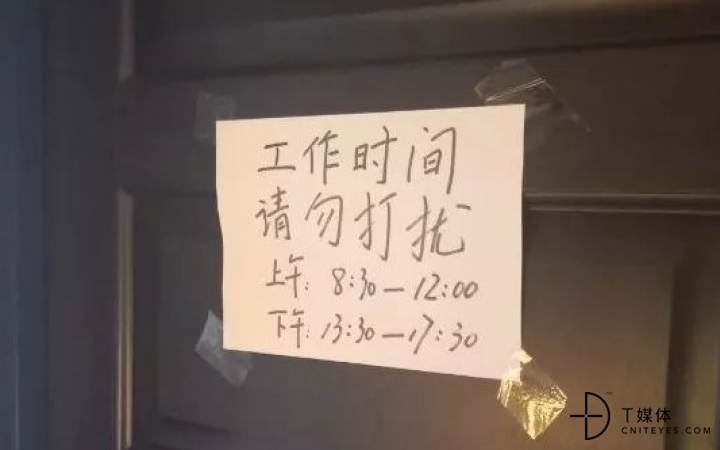 工作时间
请勿打扰
上午: 8:30—12:00
下午: 13:30—17:30
T媒体
CNITEYES.COM